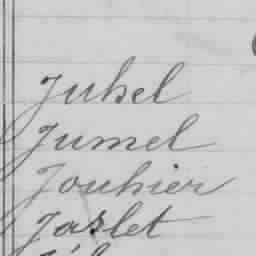 Juhel
Jumel
Jouhier
Jaslet